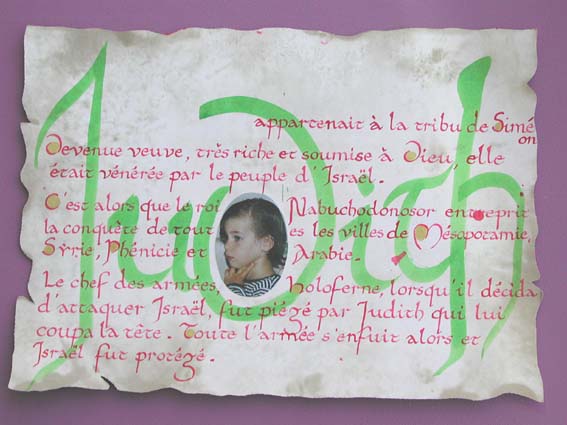 Judith
appartenait à la tribu de Siméon
Devenue veuve, très riche et soumise à Dieu, elle
était vénérée par le peuple d'Israël.
C'est alors que le roi Nabuchodonosor entreprit
la conquête de toutes les villes de Mésopotamie,
Syrie, Phénicie et Arabie.
Le chef des armées, Holoferne, lorsqu'il décida
d'attaquer Israël, fut piégé par Judith qui lui
coupa la tête. Toute l'armée s'enfuit alors et
Israël fut protégé.